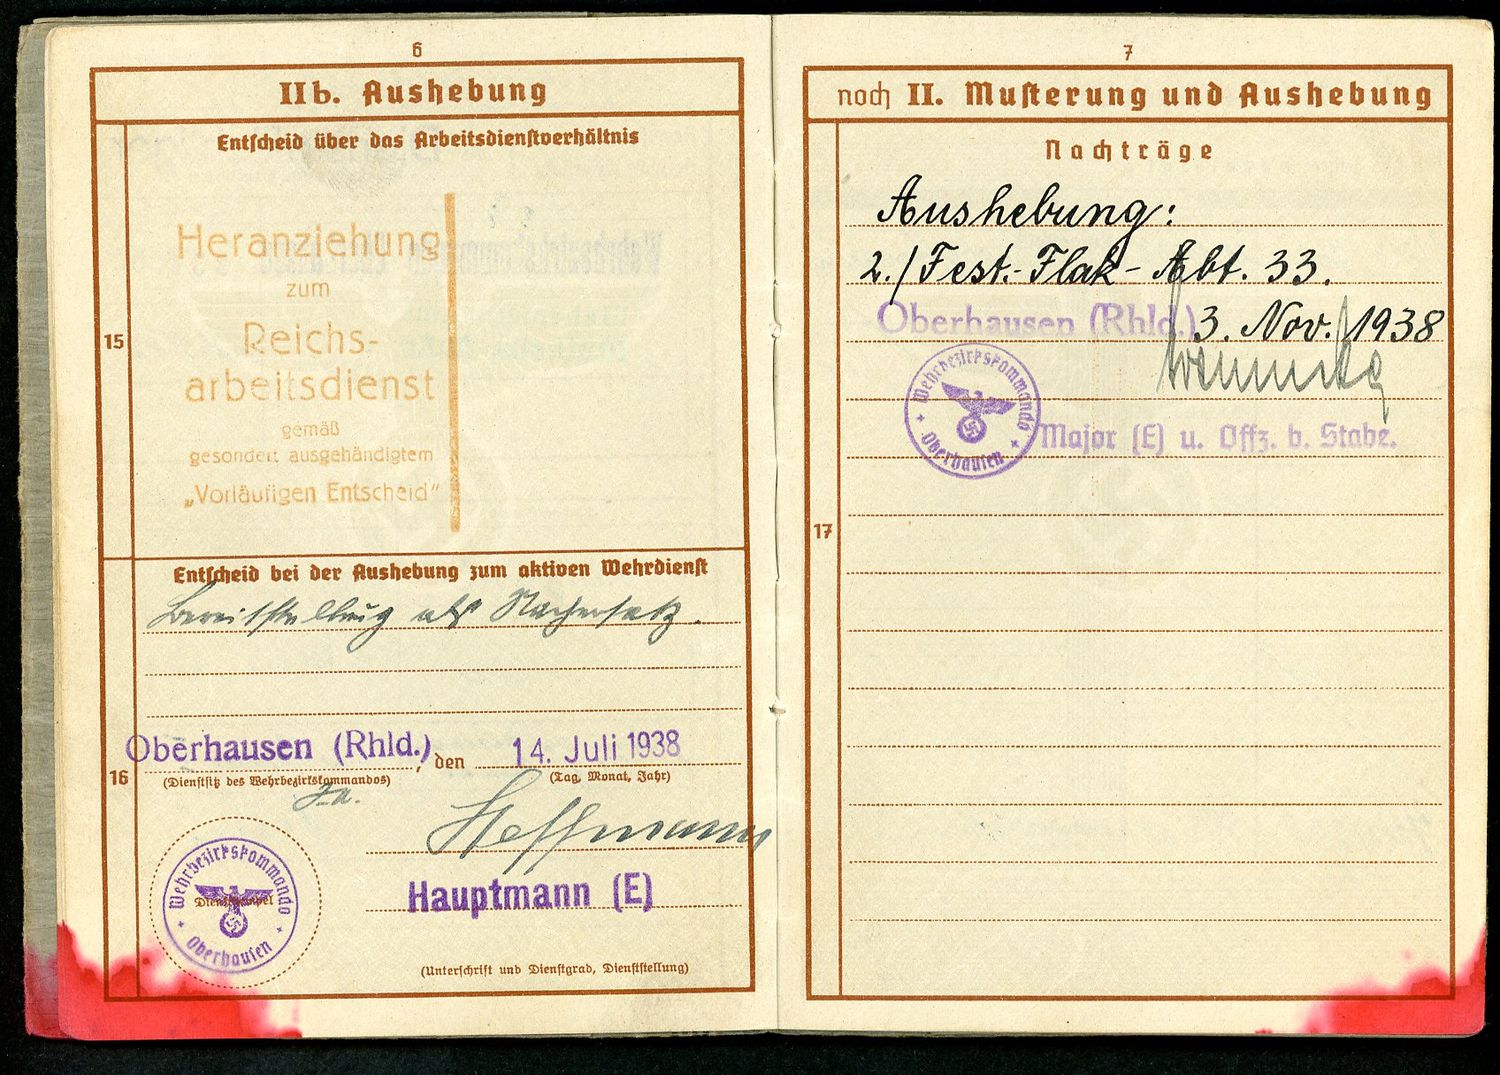 6
II b. Aushebung
Entscheid über das Arbeitsdienstverhältnis
15
Heranziehung
zum
Reichs-
arbeitsdienst
gemäß
gesondert ausgehändigtem
„Vorläufigen Entscheid“
Entscheid bei der Aushebung zum aktiven Wehrdienst
Bereitstellung als Nachersatz.
16
Oberhausen (Rhld.), den 14. Juli 1938
(Dienstsitz des Wehrbezirkskommandos)
(Tag, Monat, Jahr)
Hoffmann
Wehrbezirkskommando
Oberhausen
Dienststempel
Hauptmann (E)
(Unterschrift und Dienstgrad, Dienststellung)
7
noch II. Musterung und Aushebung
Nachträge
17
Aushebung:
2./Fest.-Flak-Abt. 33.
Oberhausen (Rhld.) 3. Nov. 1938
Wehrbezirkskommando
Oberhausen
Major (E) u. Offz. b. Stabe.